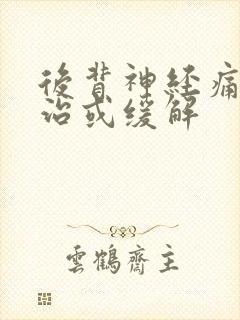 後背神経痛
治或缓解
雲鶴齋主